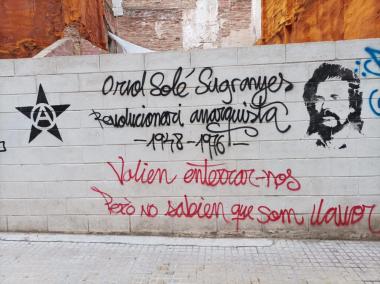 Oriol Solé Sugranyes
Revolucionari anarquista
-1948-1976-
A
Volien enterrar-nos
Però no sabien que som llavor